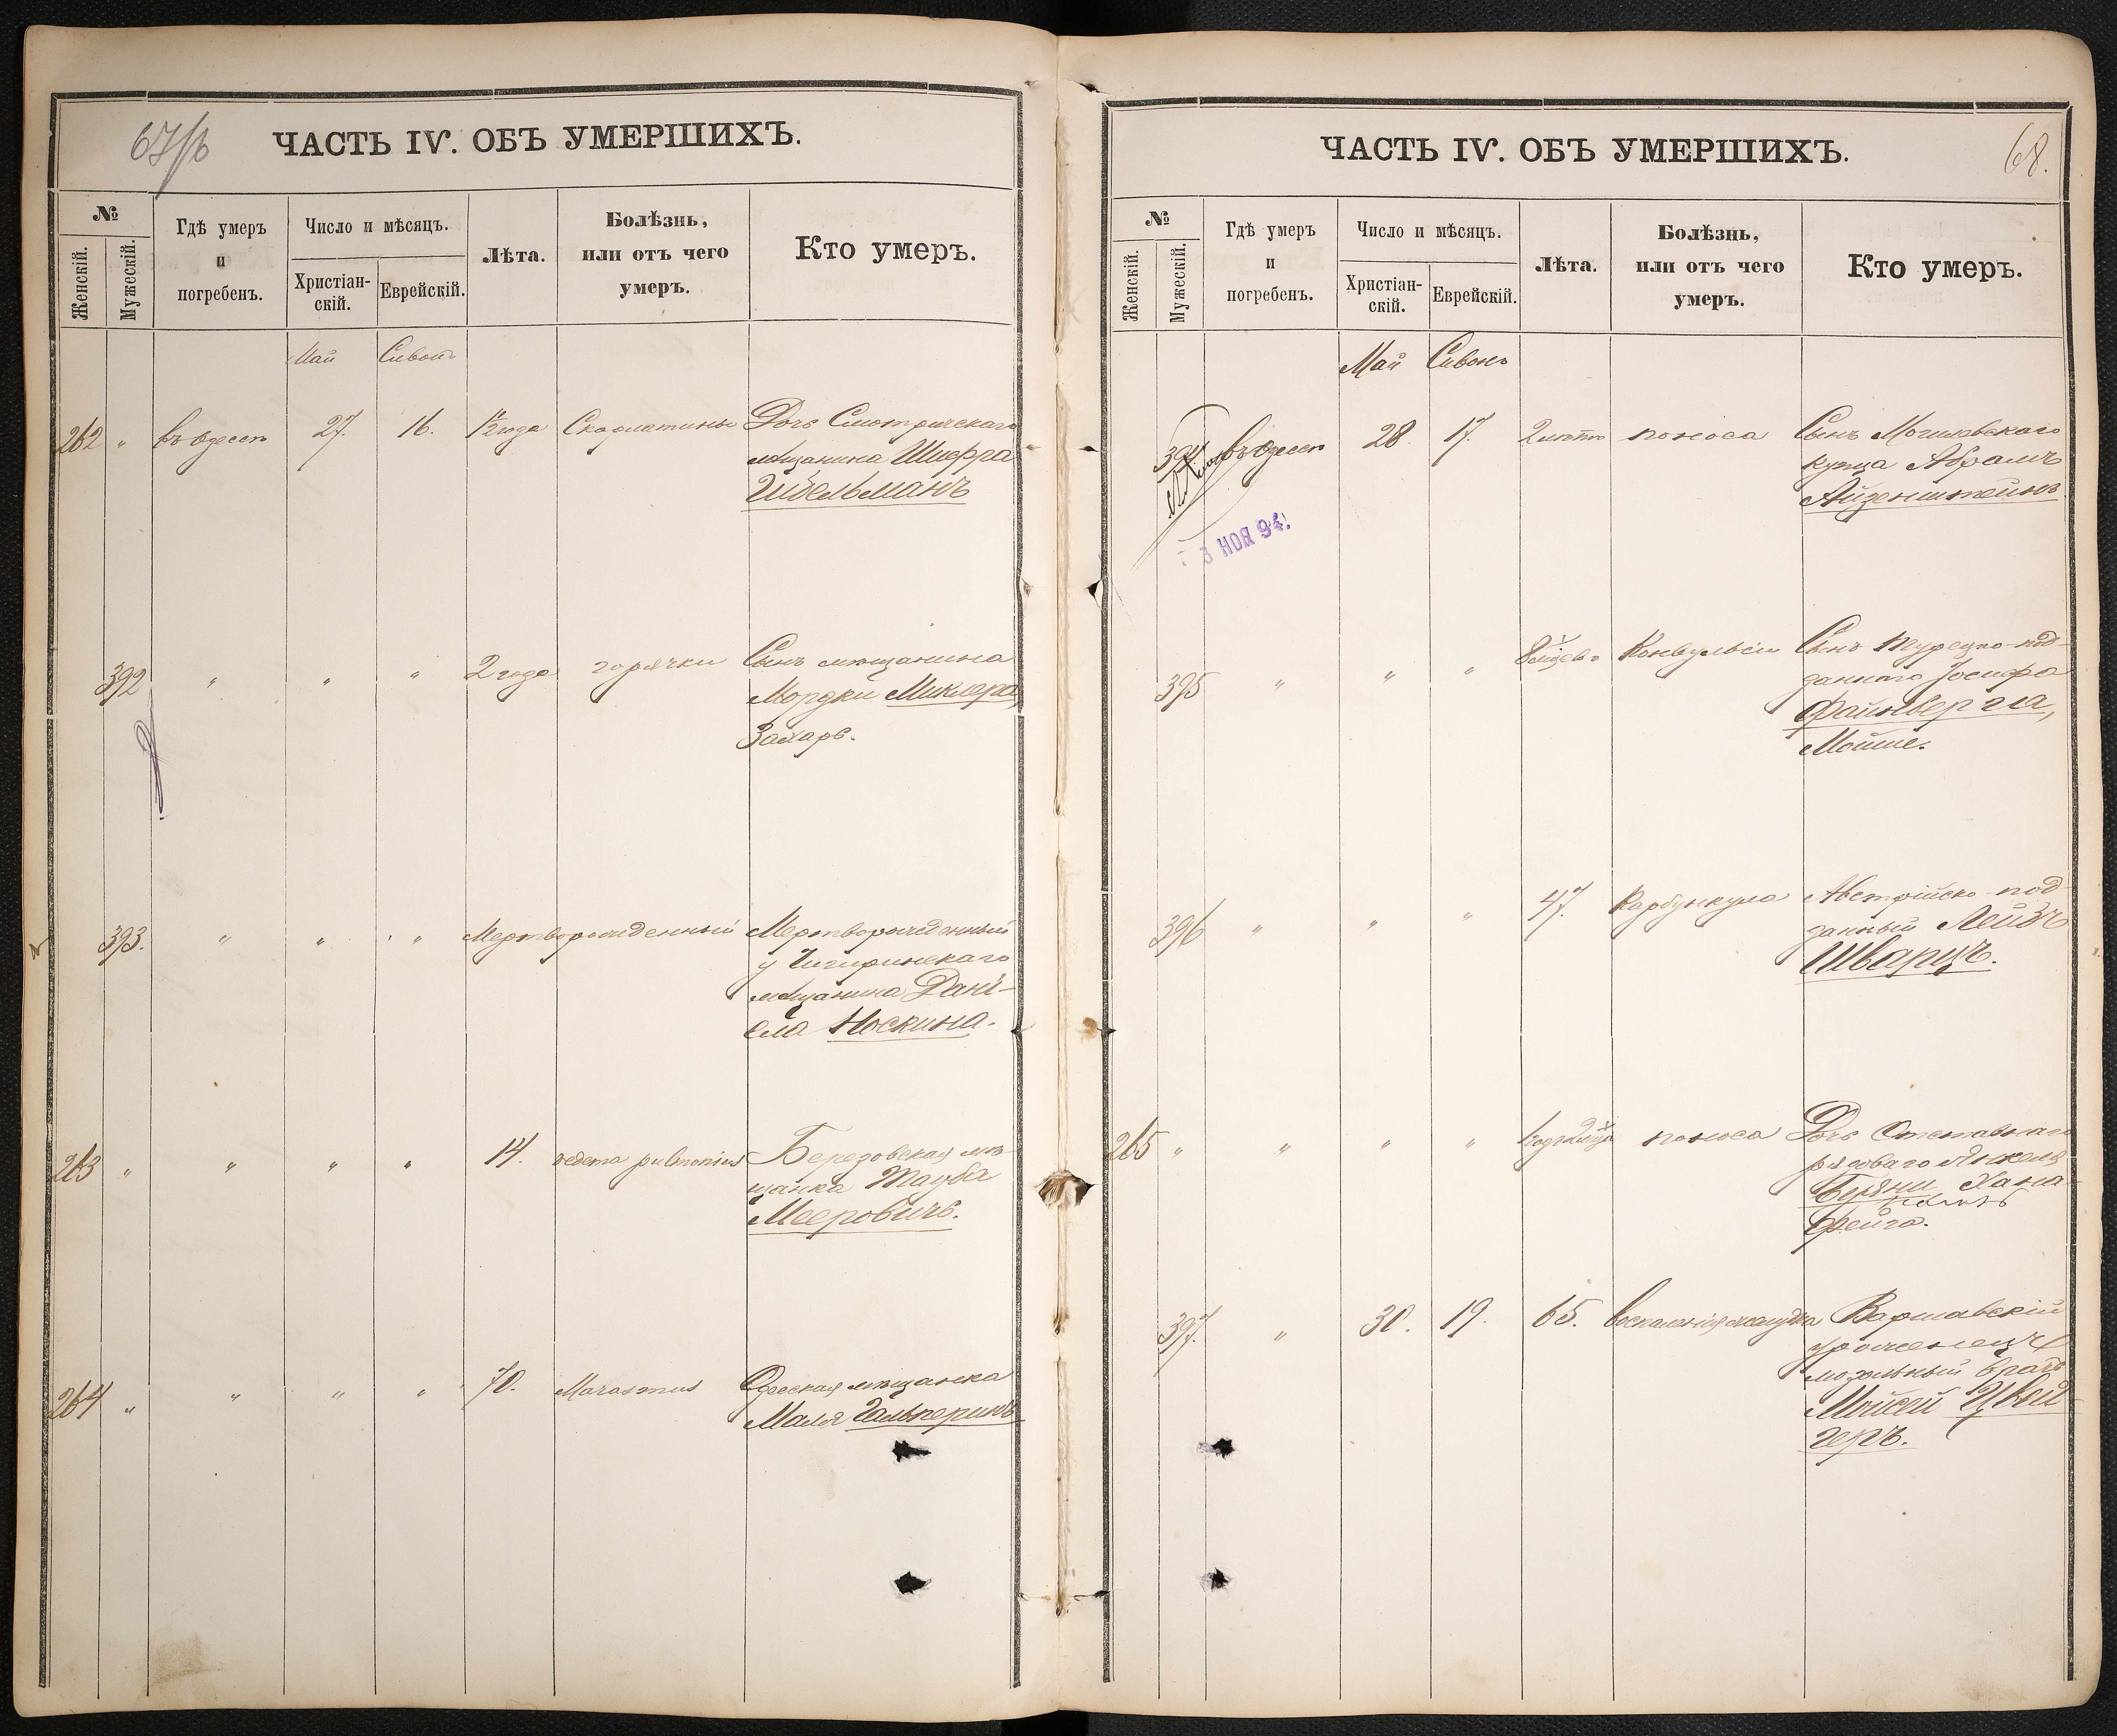 67/об
ЧАСТЬ IV. ОБЪ УМЕРШИХЪ.
№
Женскій.
Мужескій.
Гдѣ умеръ
и
погребенъ.
Число и мѣсяцъ.
Христіан-
скій.
Еврейскій.
Лѣта.
Болѣзнь,
или отъ чего
умеръ.
Кто умеръ.
Май Сивонъ
262 " въ Одессѣ 27. 16. 1½ года Скарлатины Дочь Смотричскаго
мѣщанина Шифра
Шбельманъ
392 " " " 2 года горячки Сынъ мѣщанина
Мордки Миклера,
Захаръ.
393. " " " Мертворожденный Мертворожденный
у Чигиринскаго
мѣщанина Дані-
ела Носкина.
263 " " " " 14. oedema pulmonium Березовская мѣ-
щанка Тауба
Мееровичъ.
264 " " " " 70. Marasmus Одесская мѣщанка
Маля Гальперинъ
ЧАСТЬ IV. ОБЪ УМЕРШИХЪ.
68.
№
Женскій.
Мужескій.
Гдѣ умеръ
и
погребенъ.
Число и мѣсяцъ.
Христіан-
скій.
Еврейскій.
Лѣта.
Болѣзнь,
или отъ чего
умеръ.
Кто умеръ.
Май Сивонъ
394 въ Одессѣ 28. 17. 2 лѣтъ поноса Сынъ Могилевскаго
купца Абрамъ
Айзенштейнъ
НОЯ 94.
395 " " " 8 мѣсяцевъ Конвульсіи Сынъ турецко-под-
даннаго Іосифа
Файнберга,
Мойше.
396 " " " 47. Карбункула Австрійско-под-
данный Лейзъ
Шварцъ.
265 " " " " поноса Дочь Отставнаго
рядоваго Янкеля
Хана-
Фейга.
397. " 30. 19. 65. воспаленія желудка Варшавскій
уроженецъ
мозольный врачъ
Мойсей Цвей-
геръ.